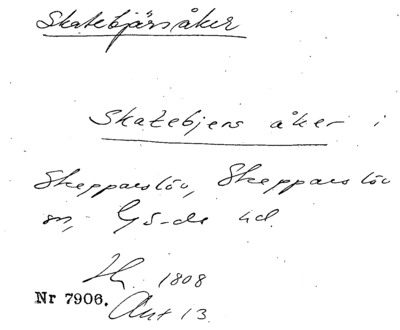 Skatebjärsåker
Skatebjers åker i
Skepparslöv, Skepparslöv
sn, Gs-de hd.
1808
Nr 7906. Akt 13.